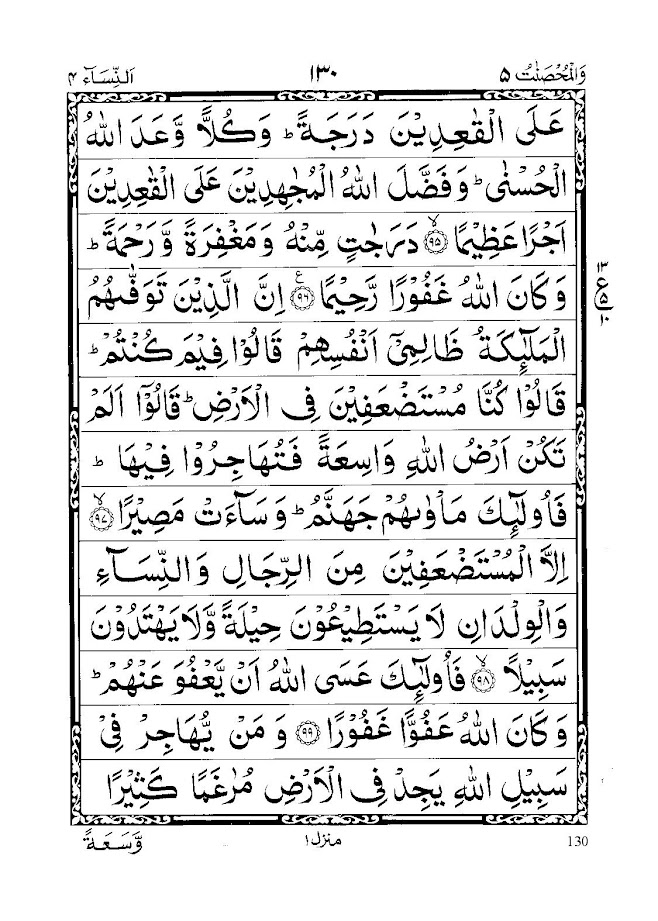 وَالْمُحْصَنٰتُ ۵ ۱۳۰ اَلنِّسَآء ۴
عَلَى الْقٰعِدِيْنَ دَرَجَةً ؕ وَكُلًّا وَّعَدَ اللّٰهُ
الْحُسْنٰى ؕ وَفَضَّلَ اللّٰهُ الْمُجٰهِدِيْنَ عَلَى الْقٰعِدِيْنَ
اَجْرًا عَظِيْمًا ۙ‏﴿۹۵﴾ دَرَجٰتٍ مِّنْهُ وَمَغْفِرَةً وَّرَحْمَةً ؕ
وَكَانَ اللّٰهُ غَفُوْرًا رَّحِيْمًا ﴿۹۶﴾ ع اِنَّ الَّذِيْنَ تَوَفّٰىهُمُ
۱۳
ع
۵
۱۰
الْمَلٰٓئِكَةُ ظَالِمِىْٓ اَنْفُسِهِمْ قَالُوْا فِيْمَ كُنْتُمْ ؕ
قَالُوْا كُنَّا مُسْتَضْعَفِيْنَ فِى الْاَرْضِ ؕ قَالُوْٓا اَلَمْ
تَكُنْ اَرْضُ اللّٰهِ وَاسِعَةً فَتُهَاجِرُوْا فِيْهَا ؕ
فَاُولٰٓئِكَ مَاْوٰىهُمْ جَهَنَّمُ ؕ وَسَآءَتْ مَصِيْرًا ۙ‏﴿۹۷﴾
اِلَّا الْمُسْتَضْعَفِيْنَ مِنَ الرِّجَالِ وَالنِّسَآءِ
وَالْوِلْدَانِ لَا يَسْتَطِيْعُوْنَ حِيْلَةً وَّلَا يَهْتَدُوْنَ
سَبِيْلًا ۙ‏﴿۹۸﴾ فَاُولٰٓئِكَ عَسَى اللّٰهُ اَنْ يَّعْفُوَ عَنْهُمْ ؕ
وَكَانَ اللّٰهُ عَفُوًّا غَفُوْرًا ﴿۹۹﴾ وَمَنْ يُّهَاجِرْ فِىْ
سَبِيْلِ اللّٰهِ يَجِدْ فِى الْاَرْضِ مُرٰغَمًا كَثِيْرًا
130 منزل ۱ وَّسَعَةً